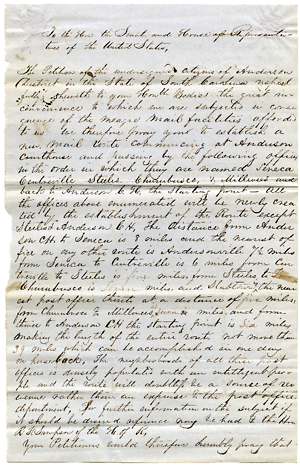 To the Hon the Senate and House of Representa-
tives of the United States,
The Petition of the undersigned citizens of Anderson
District in the State of South Carolina respect
fully sheweth to your Honble Bodies the great in-
convenience to which we are subjected in conse
quence of the meagre Mail facilities afforded
to us We therefore pray you to establish a
new Mail route commencing at Anderson
Courthouse and passing by the following offices
in the order in which they are named Seneca
Centreville Steeles Churubusco & Milford and
back to Anderson C, H, the starting point - all
the offices above enumerated will be newly crea
ted by the establishment of the Route except
Steeles & Anderson CH, The distance from Ander
son C.H. to Seneca is 8 miles and the nearest of
fice on any other route is Andersonville 7½ miles
from Seneca to Centreville is 6 miles from Cen
treville to Steeles is five miles from Steeles to
Churubusco is miles and the near
est post office thereto at a distance of five miles
from Churubusco to miles and from
thence to Anderson C.H the starting point is miles
making the length of the entire route not more than
39 miles which can be accomplished in one day
on horseback. The neighborhood of all these post
offices is densely populated with an intelligent peo-
ple and the route will doubtless be a source of re
venue rather than an expense to the post office
department, For further information on the subject if
it should be desired reference may be had to the Hon
R. F. Simpson of the H. of R,
Your Petitioners would therefore humbly pray that